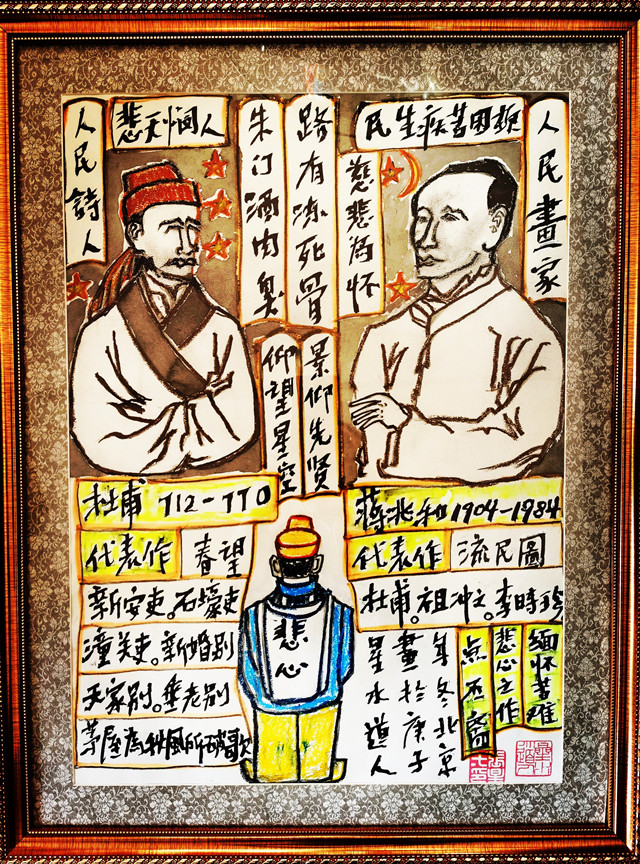 人民詩人
悲天悯人
朱门酒肉臭
路有冻死骨
民生疾苦困
慈悲为怀
人民畫家
仰望星空
景仰先贤
杜甫 712-770
代表作 春望
新安吏。石壕吏
潼关吏。新婚别
无家别。垂老别
茅屋为秋风所破歌
悲心
蒋兆和1904-1984
代表作 流民圖
杜甫。祖冲之。李時珍
星水道人
畫於庚子
年冬北京
悲心之作
缅怀苦难